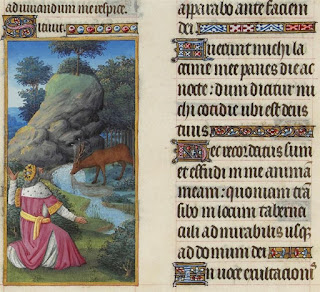 adiuuandum me respice.
Sitiuit
apparebo ante faciem
dei
Fuerunt michi la
crime mee panes die ac
nocte: dum dicitur mi
chi cotidie ubi est deus
tuus
Hec recordatus sum
et effudi in me animã
meam: quoniam trãn
sibo in locum taberna
culi admirabilis usq
ad domum dei
In uoce exultationi